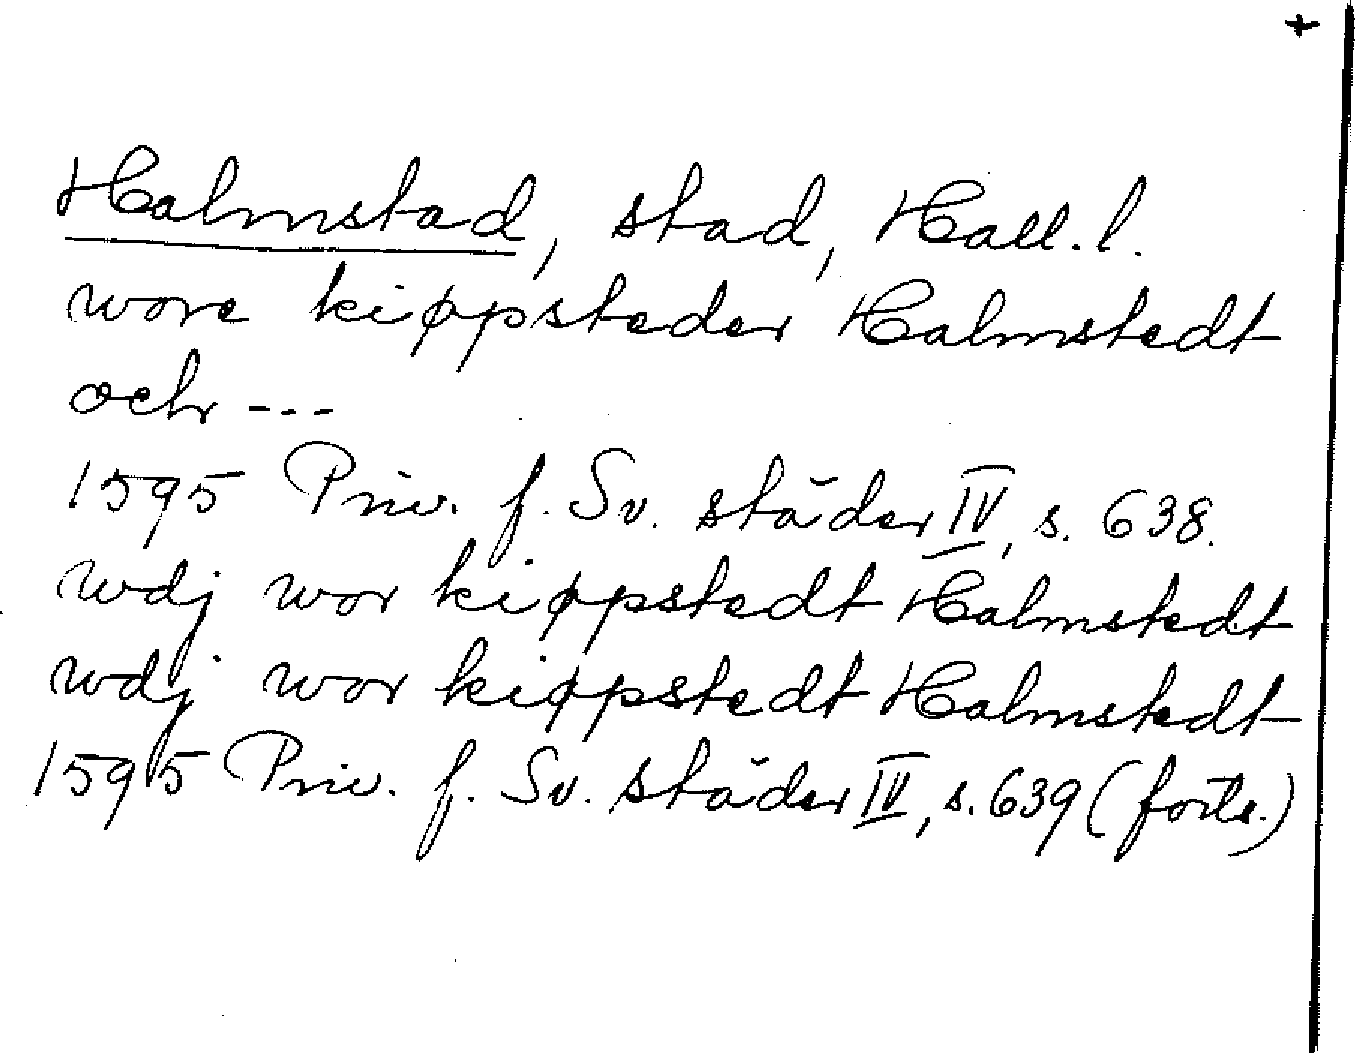 +
Halmstad, stad, Hall. l.
wore kiøpsteder Halmstedt
och ---
1595 Priv. f. Sv. städer IV, s. 638.
wdj wor kiøpstedt Halmstedt
wdj wor kiøpstedt Halmstedt
1595 Priv. f. Sv. städer IV, s. 639 (forts.)